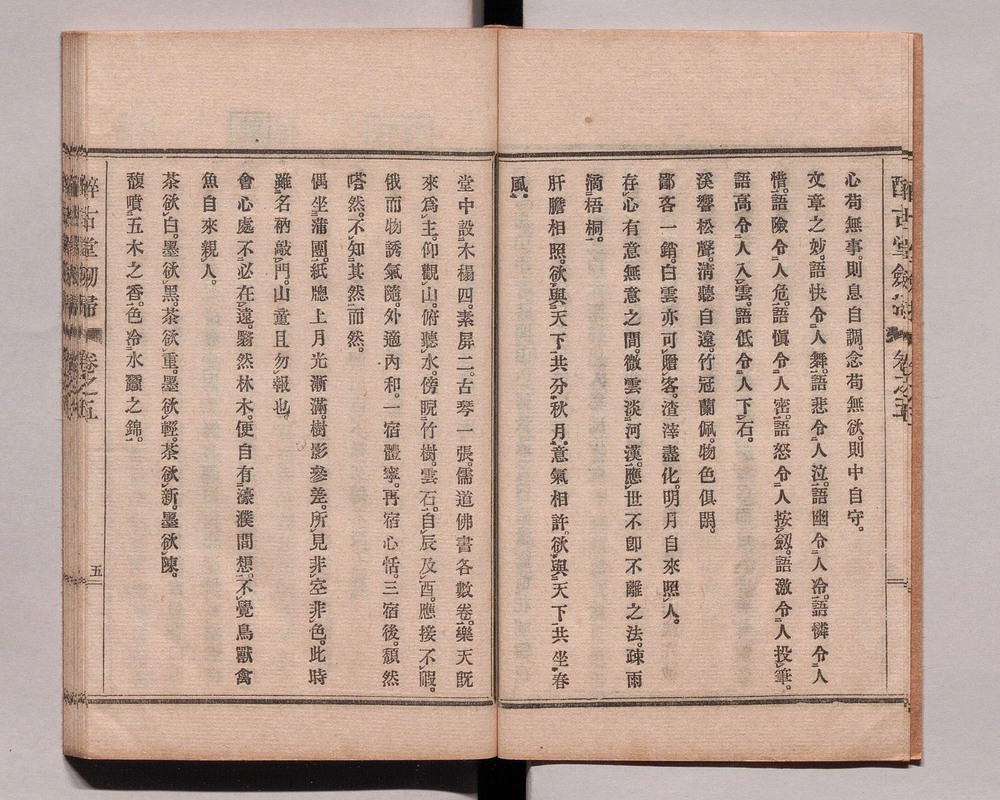 心苟無事。則息自調。念苟無欲。則中自守。
文章之妙。語快令人舞。語悲令人泣。語幽令人冷。語憐令人
惜。語險令人危。語愼令人密。語怒令人按劔。語激令人投筆。
語高令人入雲。語低令人下石。
溪響松聲。清聽自遠。竹冠蘭佩。物色俱閒。
鄙吝一銷。白雲亦可贈客。渣滓盡化。明月自來照人。
存心有意無意之間。微雲淡河漢。應世不卽不離之法。疎雨
滴梧桐。
肝膽相照。欲與天下共分秋月。意氣相許。欲與天下共坐春
風。
堂中設木榻四。素屏二。古琴一張。儒道佛書各數卷。樂天既
來爲主。仰觀山。俯聽水。傍睨竹樹。雲石。自辰及酉。應接不暇。
俄而物誘氣隨。外適內和。一宿體寧。再宿心恬。三宿後。頽然
嗒然。不知其然而然。
偶坐蒲團。紙牕上月光漸滿。樹影參差。所見非空非色。此時
雖名衲敲門。山童且勿報也。
會心處不必在遠。翳然林木。便自有濠濮間想。不覺鳥獸禽
魚自來親人。
茶欲白。墨欲黑。茶欲重。墨欲輕。茶欲新。墨欲陳。
馥噴五木之香。色冷水蠶之錦。
醉古堂劔掃
卷之五
五